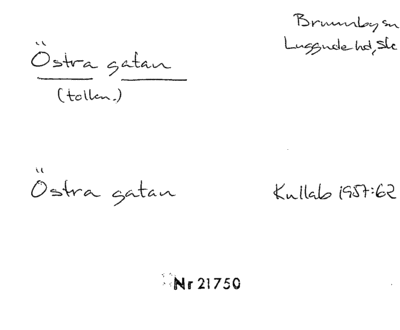 Brunnby sn
Luggude hd, Ske
Östra gatan
(tolkn.)
Östra gatan
Kullab 1957:62
Nr 21750